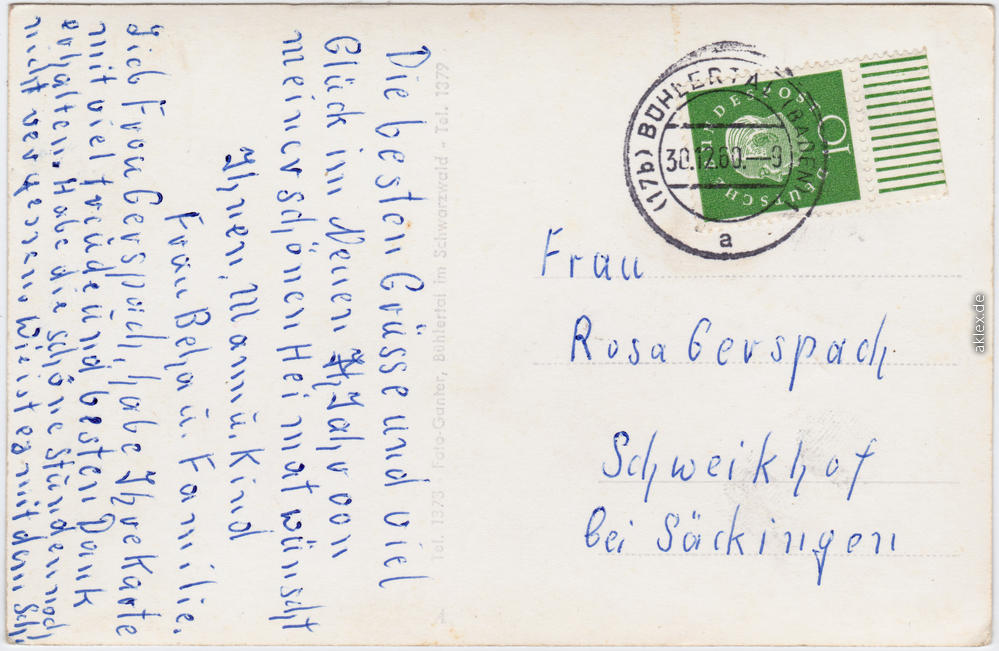 Die besten Grüsse und viel
Glück im Neuen Jahr von
meiner schönen Heimat wünscht
Ihnen, Mann ü. Kind
Frau Beha ü. Familie.
Lieb Frau Gerspach, habe Ihre Karte
mit viel freüde ünd besten Dank
erhalten. Habe die schöne Stünden noch
nicht vergessen. Wie ist es mit dem Schi
Tel. 1373 - Foto-Ganter, Bühlertal im Schwarzwald - Tel. 1379
(17b) BÜHLERTAL (BADEN)
30.12.60.--9
a
DEUTSCHE BUNDESPOST
10
Frau
Rosa Gerspach
Schweikhof
bei Säckingen
aklex.de